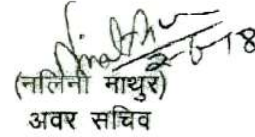 2-5-18
(नलिनी माथुर)
अवर सचिव